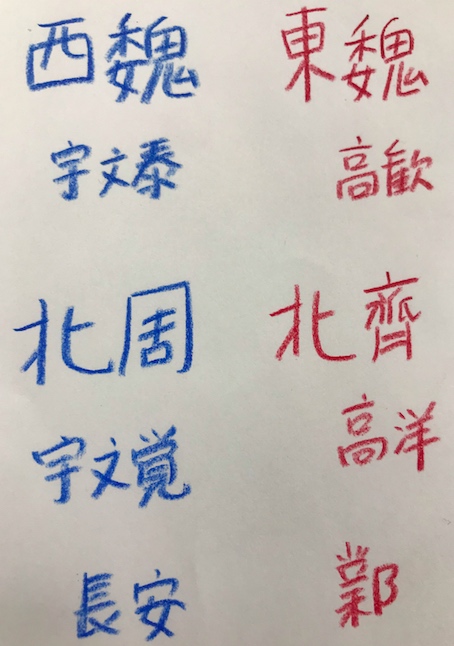 西魏 東魏
宇文泰 高歓
北周 北齊
宇文覚 高洋
長安 鄴